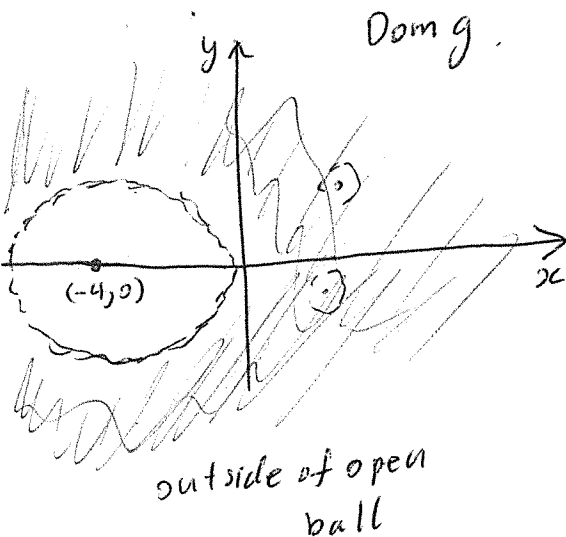 Dom g.
y
x
(-4,0)
outside of open
ball